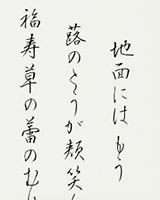 地面にはもう
蕗のとうが頬笑
福寿草の蕾のむ